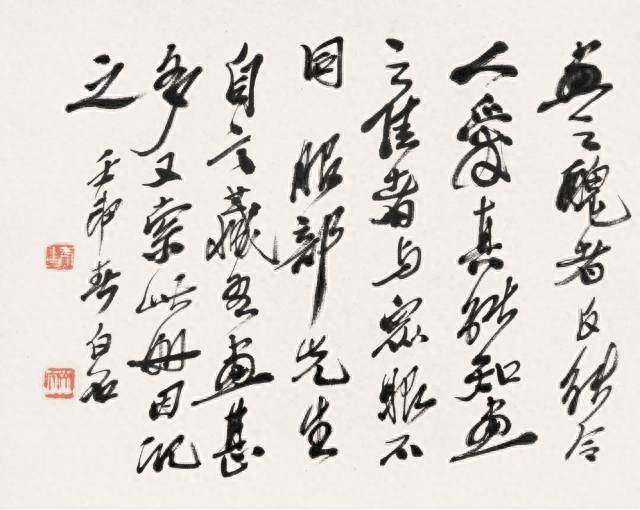 畫之醜者反能令
人愛真能知畫
之佳者与眾眼不
同 服部先生
自言藏吾畫甚
多又索此册因記
之 壬申春白石